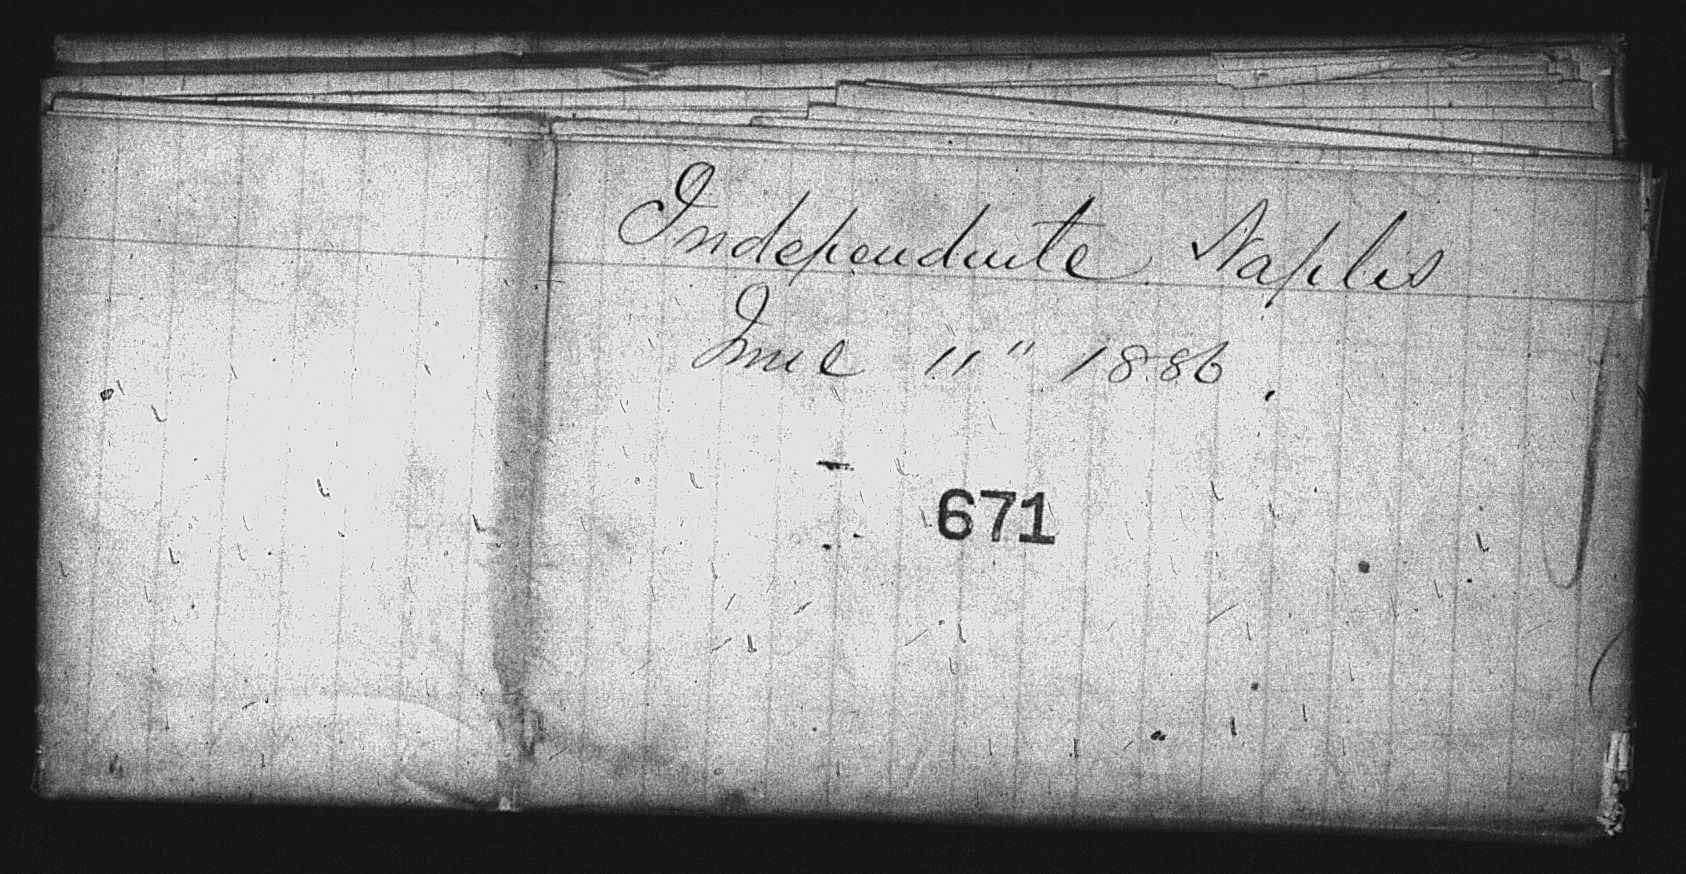 Independente Naples
June 11" 1886.
671